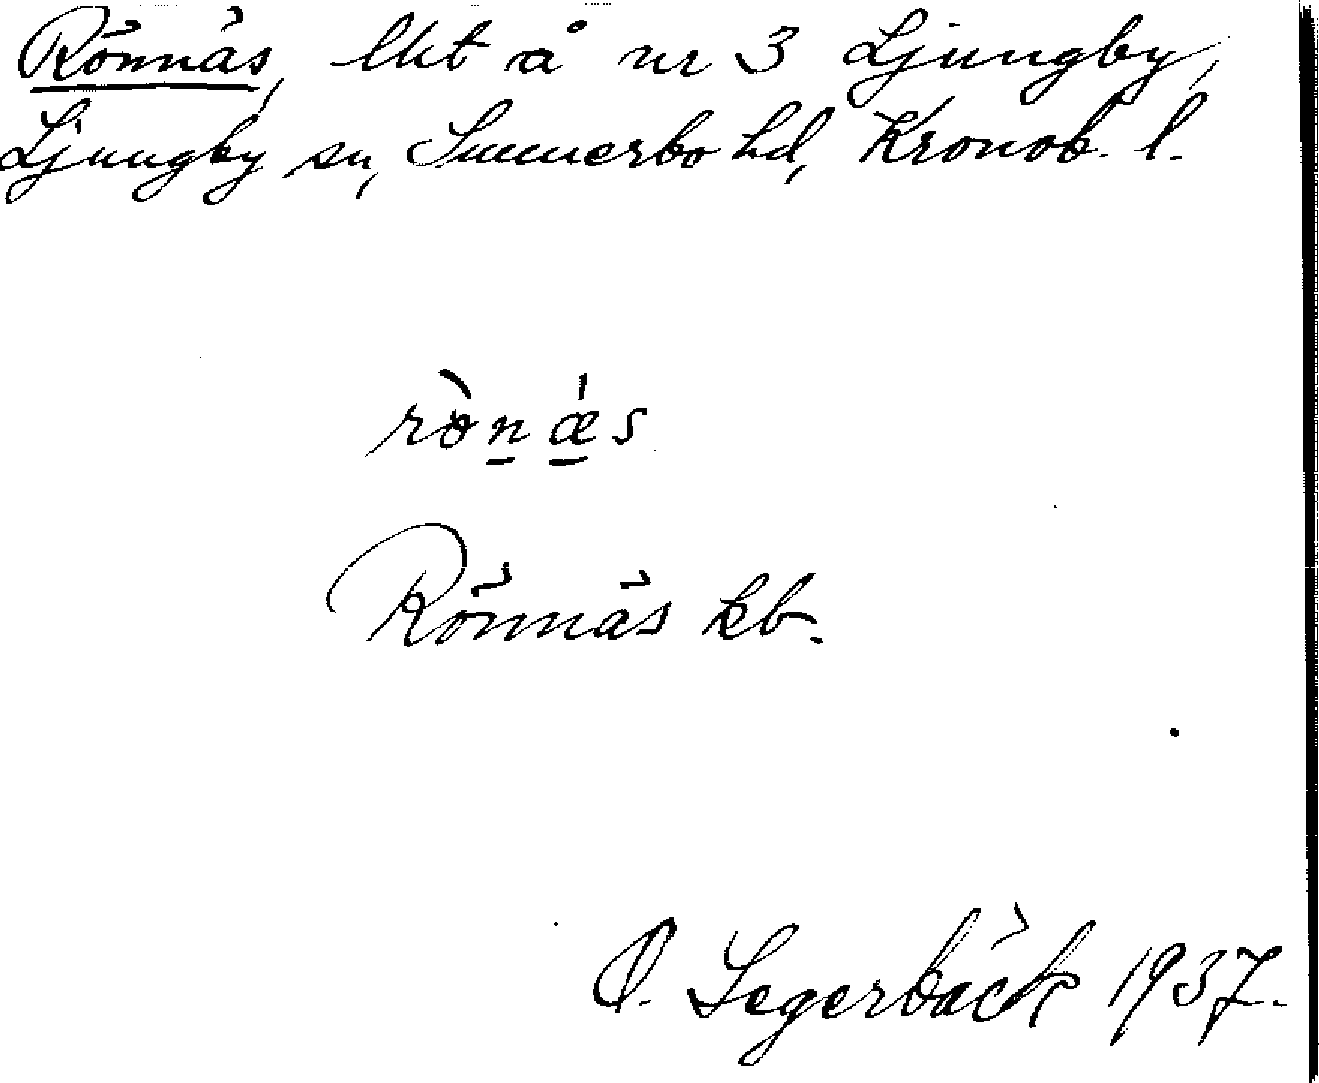 Rönnäs, lht å nr 3 Ljungby,
Ljungby sn, Sunnerbo hd, Kronob. l.
rònæ̍s
Rönnäs kb.
O. Segerbäck 1937.